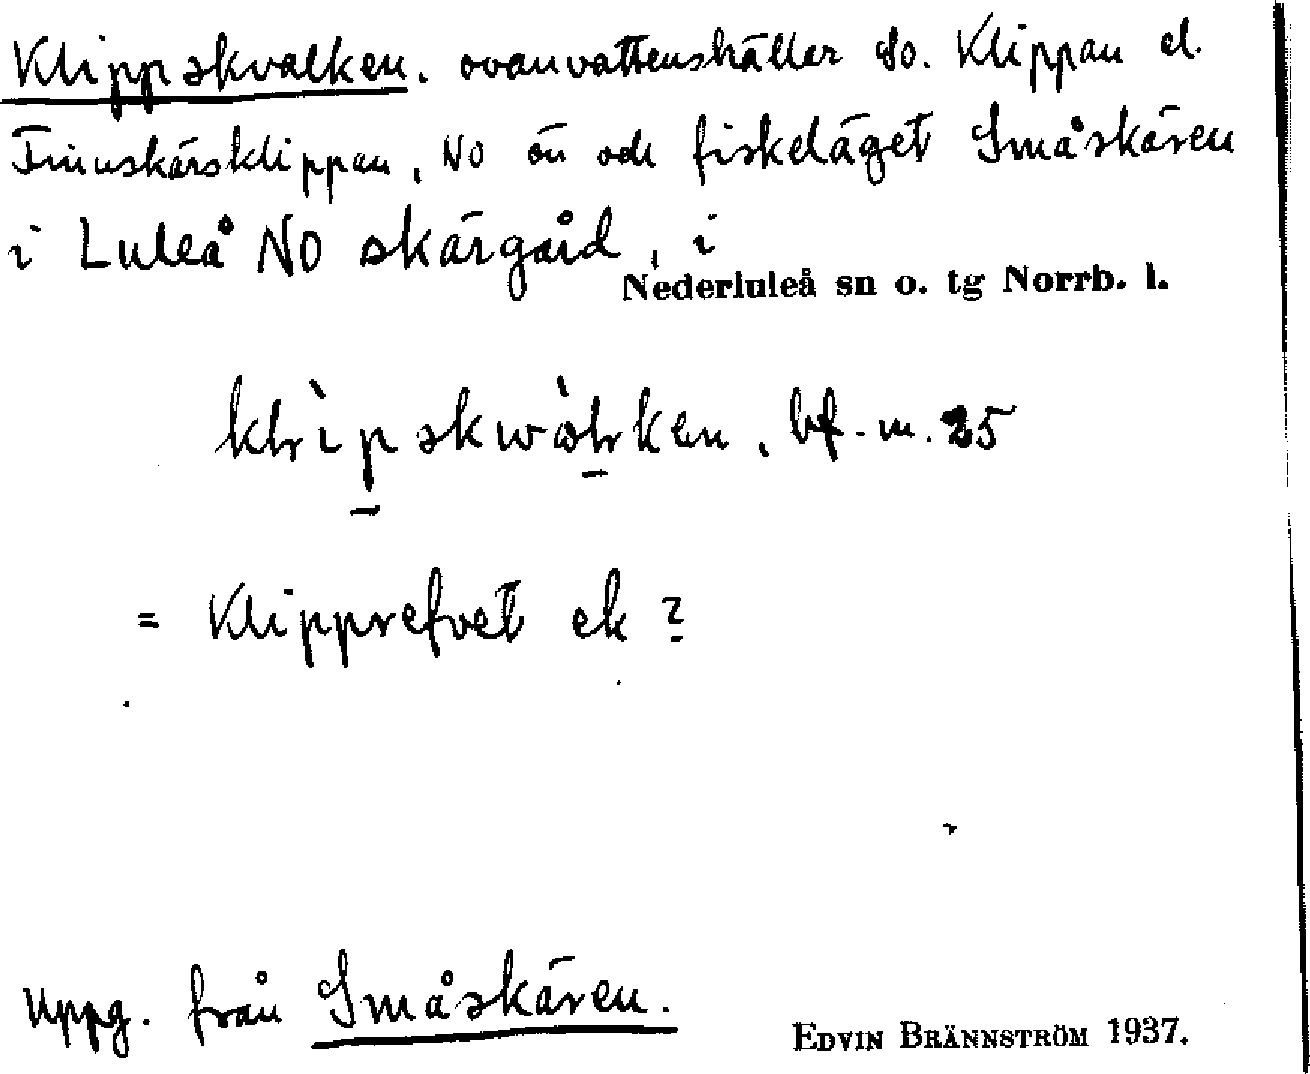 Klippskvalken. ovanvattenshäller So. Klippan el.
Finnskärsklippan, NO ön och fiskeläget Småskären
i Luleå NO skärgård, i
Nederluleå sn o. tg Norrb. l.
bf. m. 25
= Klipprefvet ek ?
Uppg. från Småskären.
EDVIN BRÄNNSTRÖM 1937.